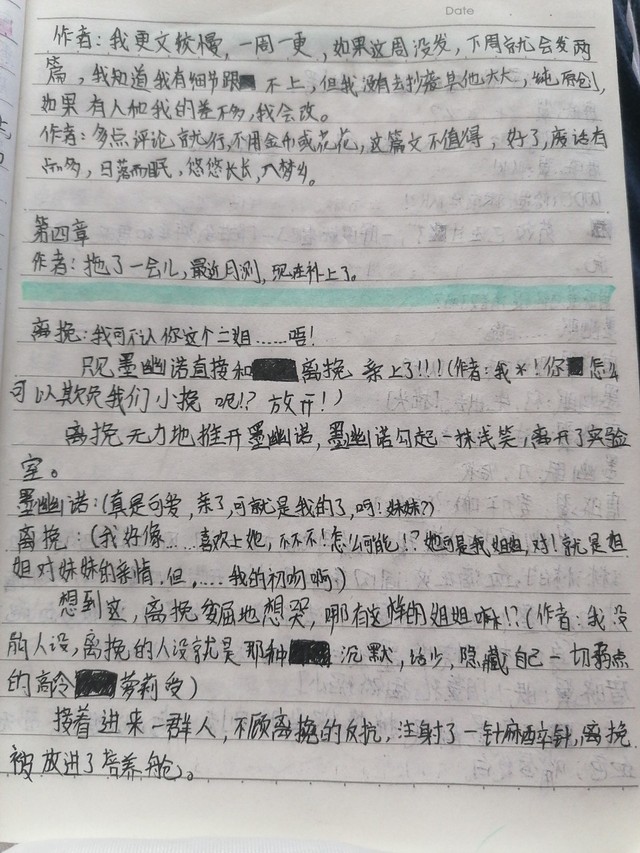 Date
作者：我更文较慢，一周一更，如果这周没发，下周就会发两
篇，我知道我有细节跟 不上，但我没有去抄袭其他大大，纯原创，
如果有人和我的差不多，我会改。
作者：多点评论就行，不用金币或花花，这篇文不值得，好了，废话有
点多，日落而眠，悠悠长长，入梦乡。
第四章
作者：拖了一会儿，最近月测，现在补上了。
离挽：我可不认你这个二姐……唔！
只见墨幽诺直接和 离挽 亲上了！！！(作者：我*！你 怎么
可以欺负我们小挽 呢！？放开！)
离挽无力地推开墨幽诺，墨幽诺勾起一抹浅笑，离开了实验
室。
墨幽诺：(真是可爱，亲了，可就是我的了，呵！妹妹？)
离挽：(我好像……喜欢上她，不不不！怎么可能！？她可是我姐姐，对！就是姐
姐对妹妹的亲情，但，……我的初吻啊。)
想到这，离挽委屈地想哭，哪有这样的姐姐嘛！？(作者：我没
崩人设，离挽的人设就是那种 沉默，话少，隐藏自己一切弱点
的高冷 萝莉受)
接着进来一群人，不顾离挽的反抗，注射了一针麻醉针，离挽
被放进了培养舱。